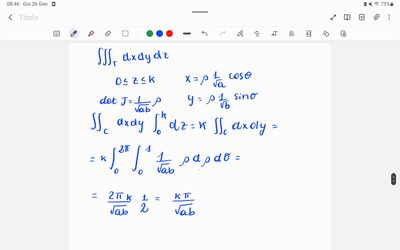 08:46 Gio 26 Gen
73%
Titolo
∭_T dxdydz
0 ≤ z ≤ k    x = ρ 1/√a cosθ
det J = 1/√ab ρ    y = ρ 1/√b sinθ
∬_C dxdy ∫_0^k dz = k ∬_C dxdy =
= k ∫_0^2π ∫_0^1 1/√ab ρ dρ dθ =
= 2πk/√ab 1/2 = kπ/√ab